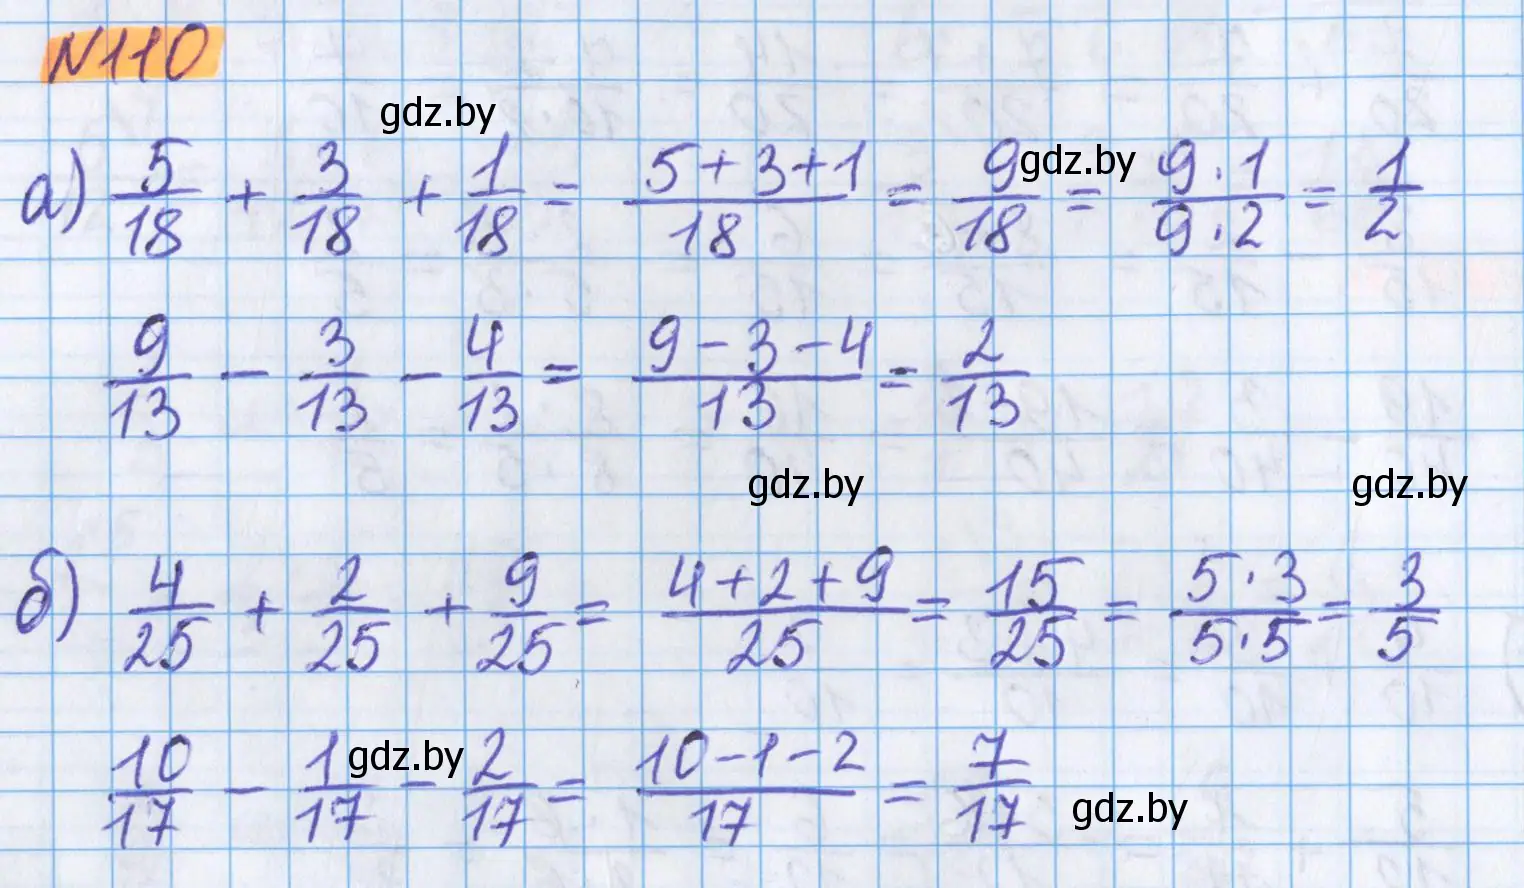 N110
gdz.by
а) 5/18 + 3/18 + 1/18 = (5+3+1)/18 = 9/18 = (9·1)/(9·2) = 1/2
gdz.by
9/13 - 3/13 - 4/13 = (9-3-4)/13 = 2/13
gdz.by gdz.by
б) 4/25 + 2/25 + 9/25 = (4+2+9)/25 = 15/25 = (5·3)/(5·5) = 3/5
10/17 - 1/17 - 2/17 = (10-1-2)/17 = 7/17
gdz.by
gdz.by